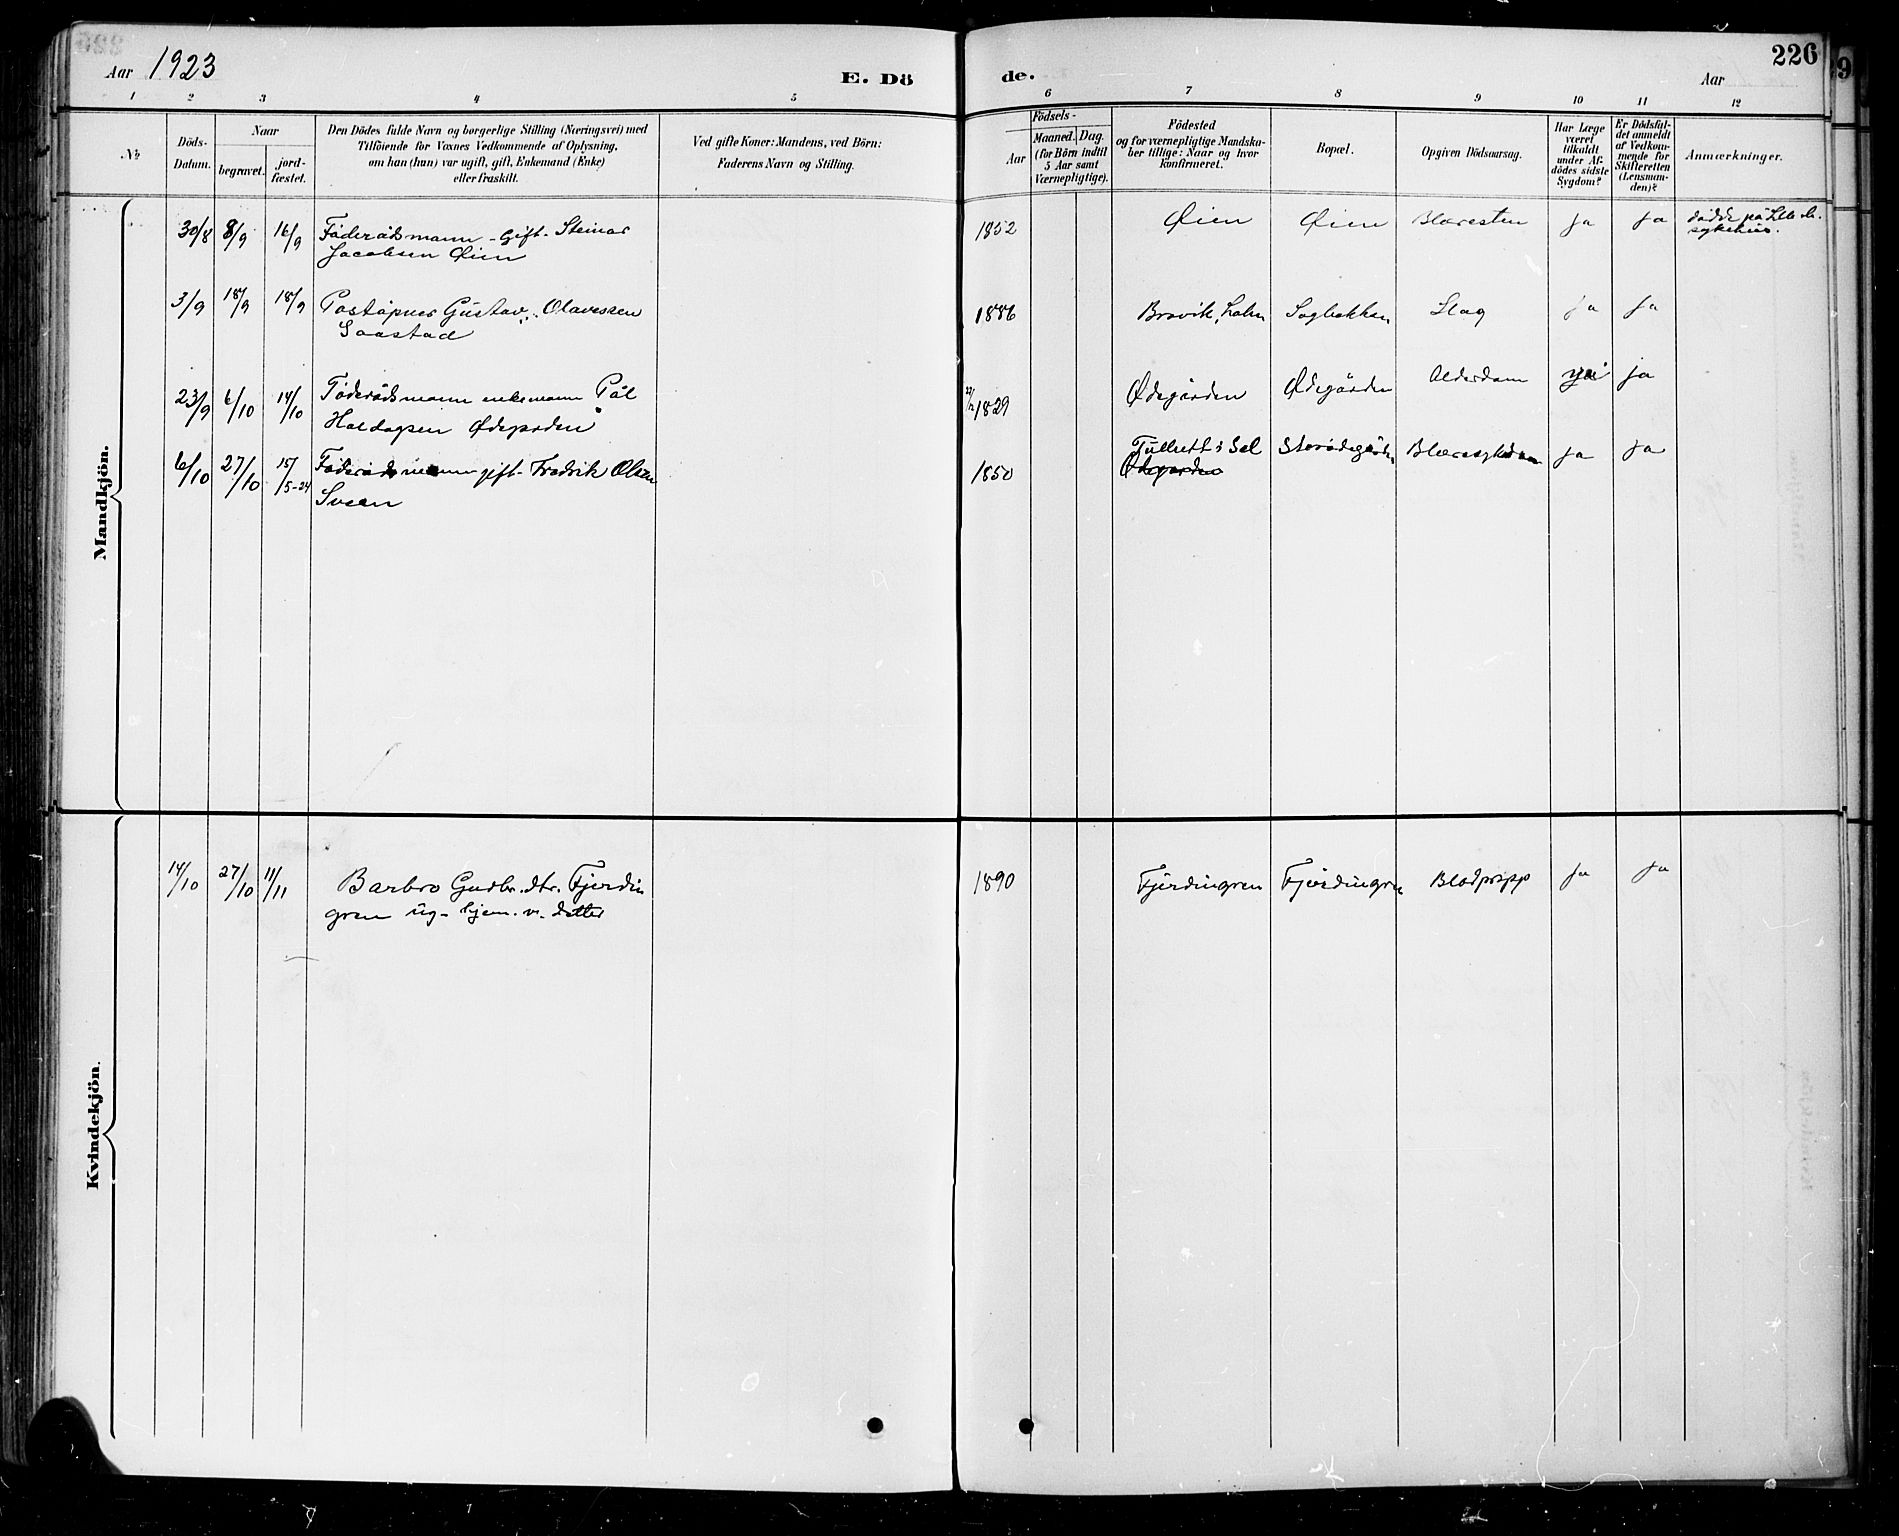 Aar 1923
E. Dö
de.
Aar
226
1 2 3 4 5 6 7 8 9 10 11 12
№
Döds-
Datum.
Naar
begravet.
jord-
fæstet.
Den Dödes fulde Navn og borgerlige Stilling (Næringsvei) med
Tilföiende for Voxnes Vedkommende af Oplysning,
om han (hun) var ugift, gift, Enkemand (Enke)
eller fraskilt.
Ved gifte Koner: Mandens, ved Börn:
Faderens Navn og Stilling.
Födsels-
Aar
Maaned. Dag.
(for Börn indtil
5 Aar samt
Værnepligtige).
Födested
og for værnepligtige Mandska-
ber tillige: Naar og hvor
konfirmeret.
Bopæl.
Opgiven Dödsaarsag.
Har Læge
været
tilkaldt
under Af-
dödes sidste
Sygdom?
Er Dödsfal-
det anmeldt
af Vedkom-
mende for
Skifteretten
(Lensman-
den)?
Anmærkninger.
Mandkjön.
30/8 8/9 16/9 Föderådsmann - Gift - Steinar
Jacobsen Øien
1852 Øien Øien Blæresten ja ja døde på Lille h.
sykehus.
3/9 18/9 18/9 Poståpner Gustav Olavessen
Saastad
1886 Brøvik, Sogbakken Slag ja ja
23/9 6/10 14/10 Föderådsmann enkemann Pål
Haldogsen Ødegården
1829 Ødegården Ødegården Alderdom ja ja
6/10 27/10 15/5-24 Föderådsmann gift - Fredrik Olsen
Sveen
1850 Tulhett i Sel Storødegården Blæresykdom ja ja
Ødegården
Kvindekjön.
14/10 27/10 11/11 Barbro Gudbr. dtr. Fjerdin
gren ug - hjem. v. datter
1890 Fjerdingren Fjerdingren Blodpropp ja ja